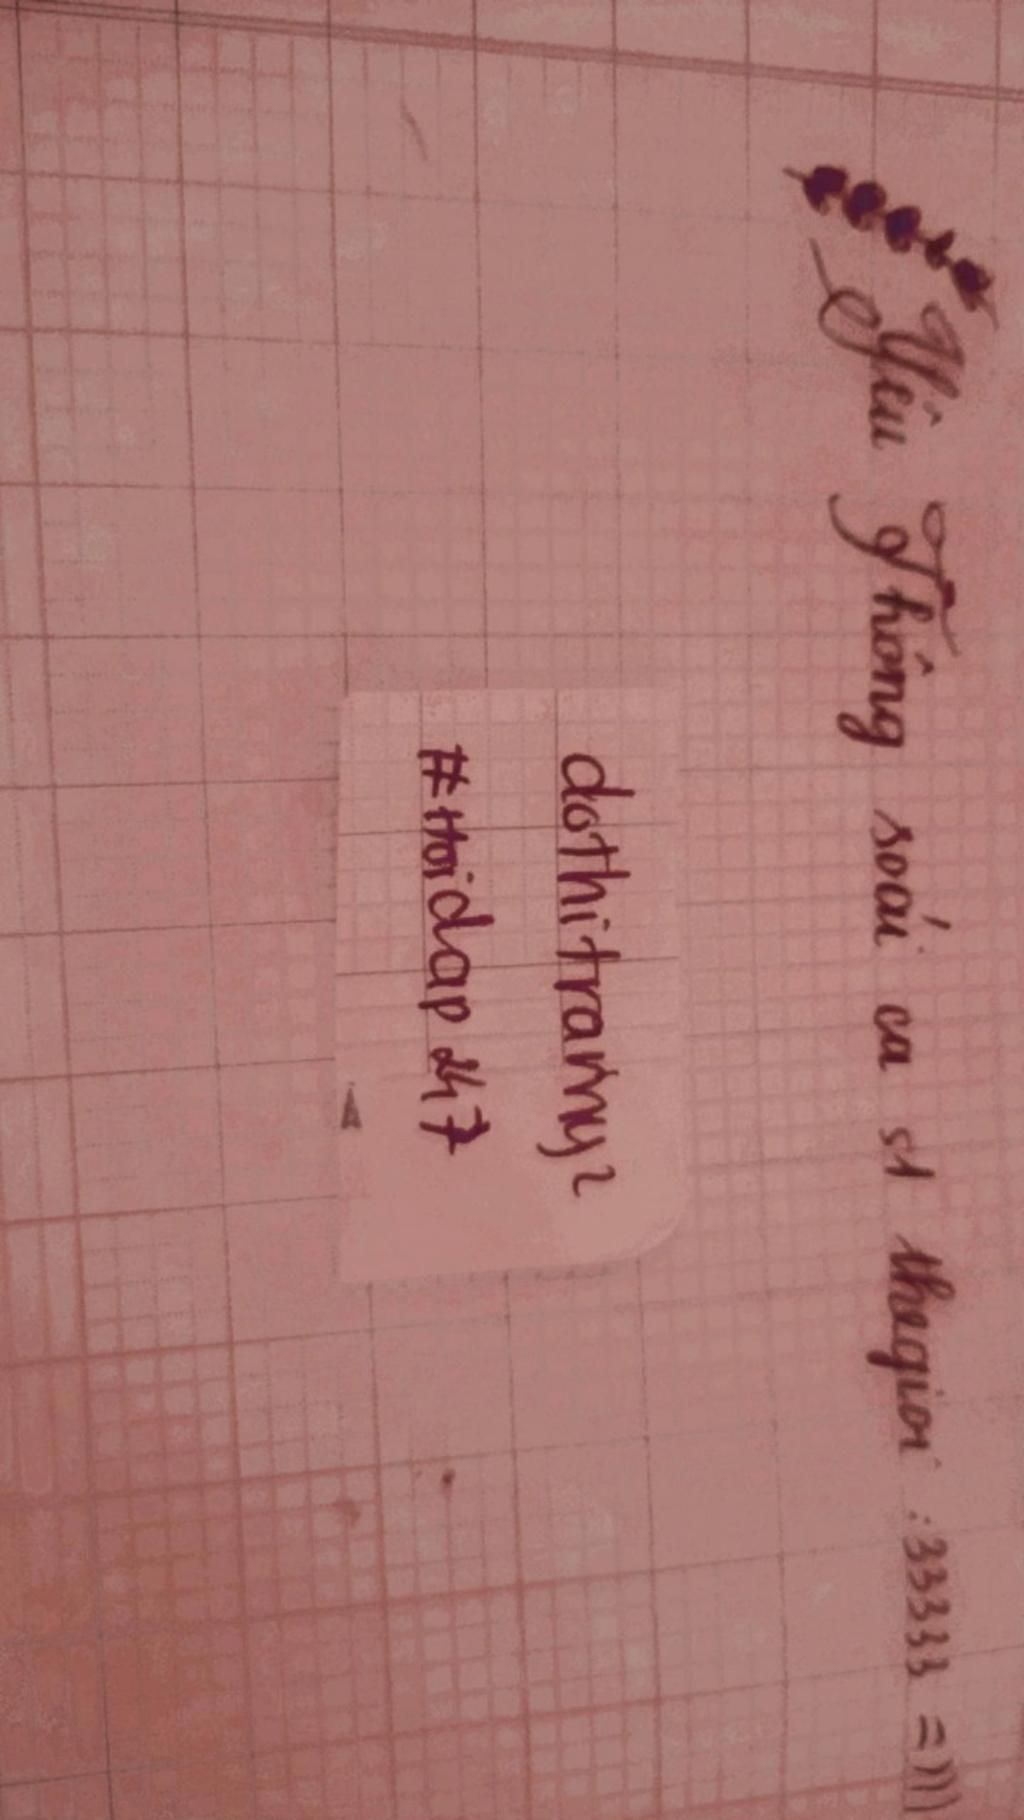 Yêu Thông soái ca s1 thegioi :33333 =)))
dothitramy2
#Hoidap247